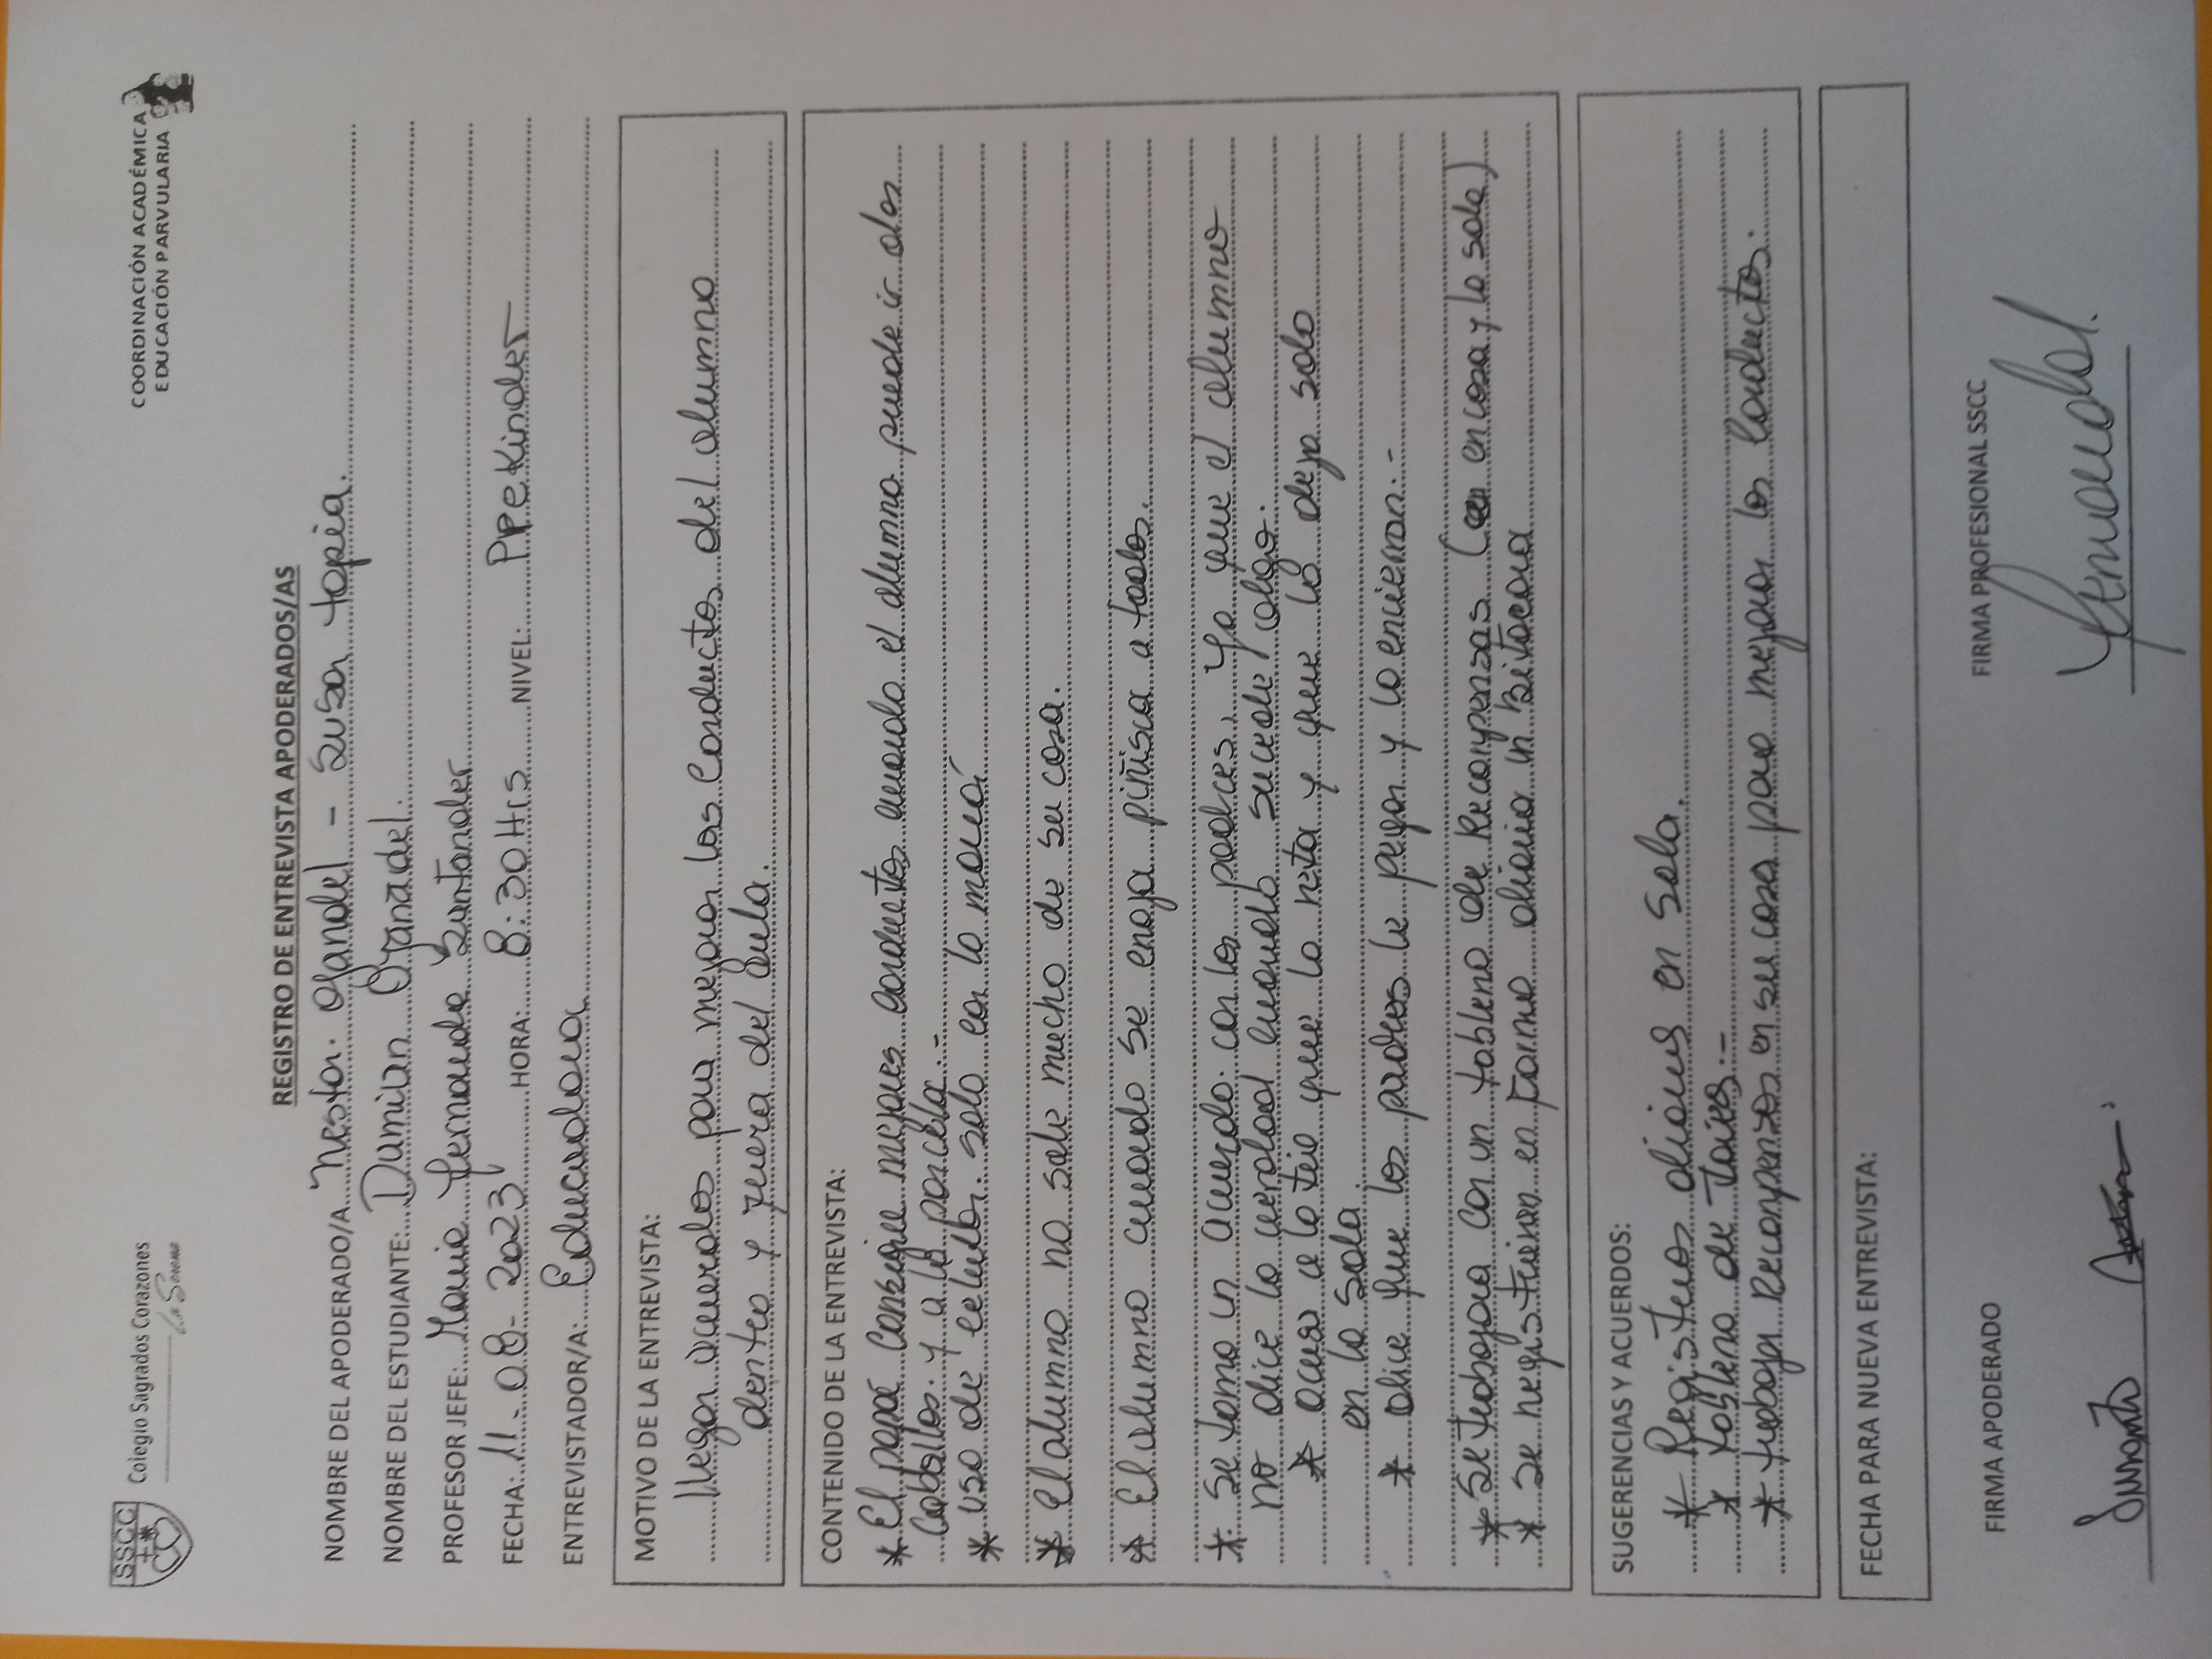 SSCC
Colegio Sagrados Corazones
La Serena
COORDINACIÓN ACADÉMICA
EDUCACIÓN PARVULARIA
REGISTRO DE ENTREVISTA APODERADOS/AS
NOMBRE DEL APODERADO/A: Nestor - Susan tapia.
NOMBRE DEL ESTUDIANTE: Damian
PROFESOR JEFE: Maria Fernanda Santander
FECHA: 11-08-2023 HORA: 8:30 Hrs NIVEL: PreKinder
ENTREVISTADOR/A: Educadora
MOTIVO DE LA ENTREVISTA:
llegar acuerdos para mejorar las Conductas del alumno
dentro y fuera del Aula.
CONTENIDO DE LA ENTREVISTA:
* El papá Consigue mejores conductas cuando el alumno puede ir a los
Caballos y a la parcela.-
* uso de celular solo con la mamá
* El alumno no sale mucho de su casa.
* El alumno cuando se enoja piñisca a todos.
* Se toma un acuerdo con los padres, Ya que el alumno
no dice la verdad cuando sucede algo.
* acusa a la tia que lo reta y que lo deja solo
en la sala.
* dice que los padres le pegan y lo encierran.-
* Se trabajara con un tablero de Recompensas (en casa y la sala)
* Se registrara en forma diaria in Bitacora
SUGERENCIAS Y ACUERDOS:
* Registros diarios en Sala.
* tablero de
* trabajar Recompensas en su casa para mejorar las Conductas.
FECHA PARA NUEVA ENTREVISTA:
FIRMA APODERADO
FIRMA PROFESIONAL SSCC